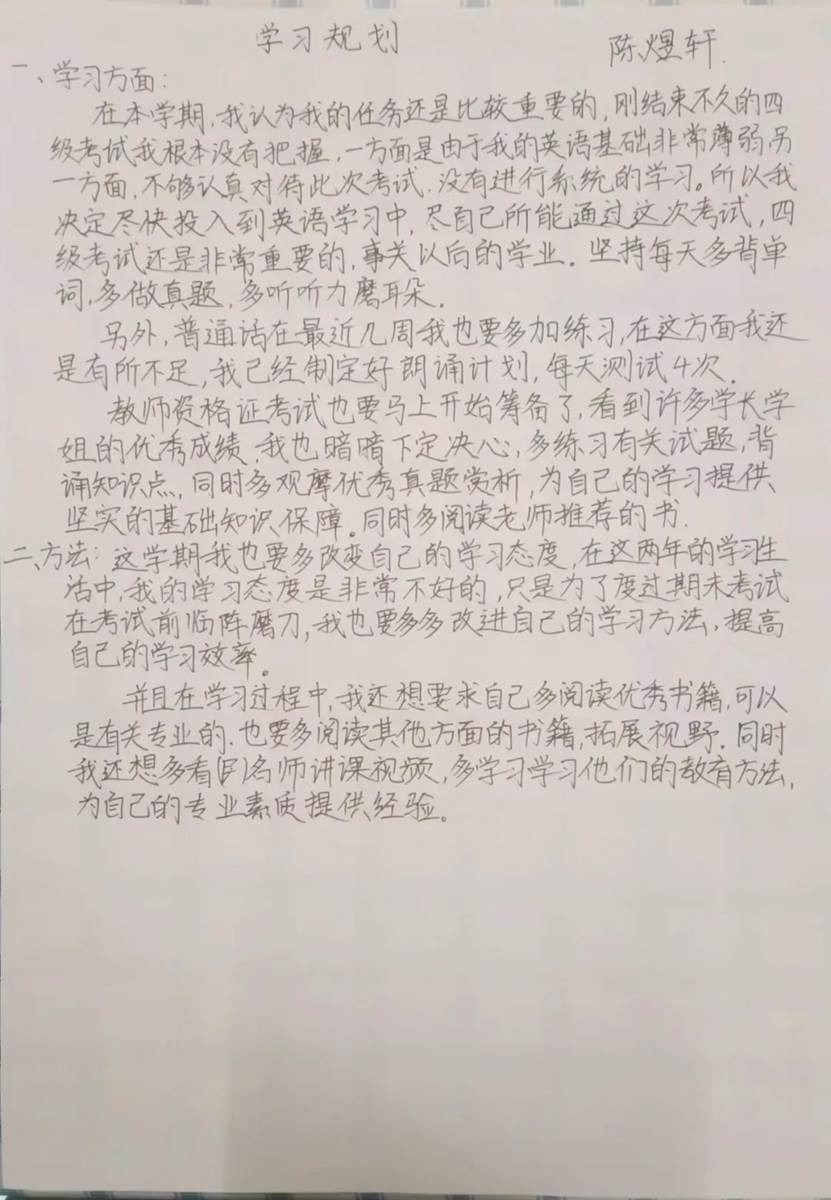 学习规划
陈煜轩.
一、学习方面:
在本学期,我认为我的任务还是比较重要的,刚结束不久的四
级考试我根本没有把握,一方面是由于我的英语基础非常薄弱,另
一方面,不够认真对待此次考试.没有进行系统的学习。所以我
决定尽快投入到英语学习中,尽自己所能通过这次考试,四
级考试还是非常重要的,事关以后的学业.坚持每天多背单
词,多做真题,多听听力磨耳朵.
另外,普通话在最近几周我也要多加练习,在这方面我还
是有所不足,我已经制定好朗诵计划,每天测试4次.
教师资格证考试也要马上开始筹备了,看到许多学长学
姐的优秀成绩,我也暗暗下定决心,多练习有关试题,背
诵知识点,同时多观摩优秀真题赏析,为自己的学习提供
坚实的基础知识保障。同时多阅读老师推荐的书.
二、方法:这学期我也要多改变自己的学习态度,在这两年的学习生
活中,我的学习态度是非常不好的,只是为了度过期末考试
在考试前临阵磨刀,我也要多多改进自己的学习方法,提高
自己的学习效率。
并且在学习过程中,我还想要求自己多阅读优秀书籍,可以
是有关专业的.也要多阅读其他方面的书籍,拓展视野.同时
我还想多看名师讲课视频,多学习学习他们的教育方法,
为自己的专业素质提供经验。